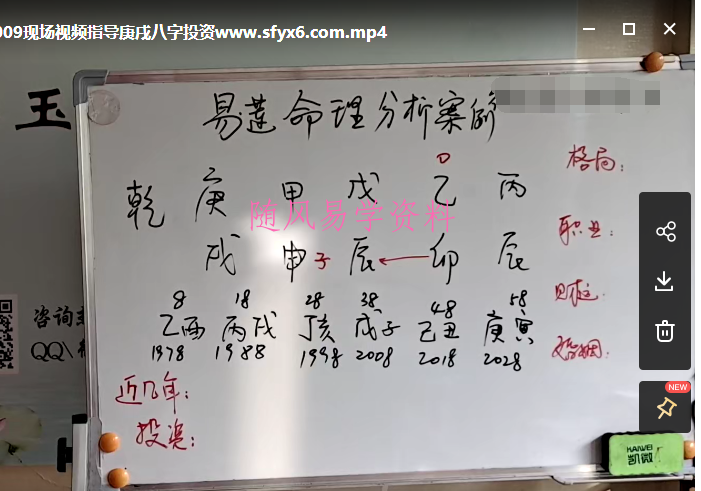 009现场视频指导庚戌八字投资www.sfyx6.com.mp4
玉
易莲命理分析案例
格局:
乾 庚 甲 戊 乙 丙
随风易学资料
职业:
戌 申 子 辰 卯 辰
8 18 28 38 48 58
财运:
咨询
乙酉 丙戌 丁亥 戊子 己丑 庚寅
QQ\
婚姻:
1978 1988 1998 2008 2018 2028
近几年:
投资:
NEW
HANVEI
凯微